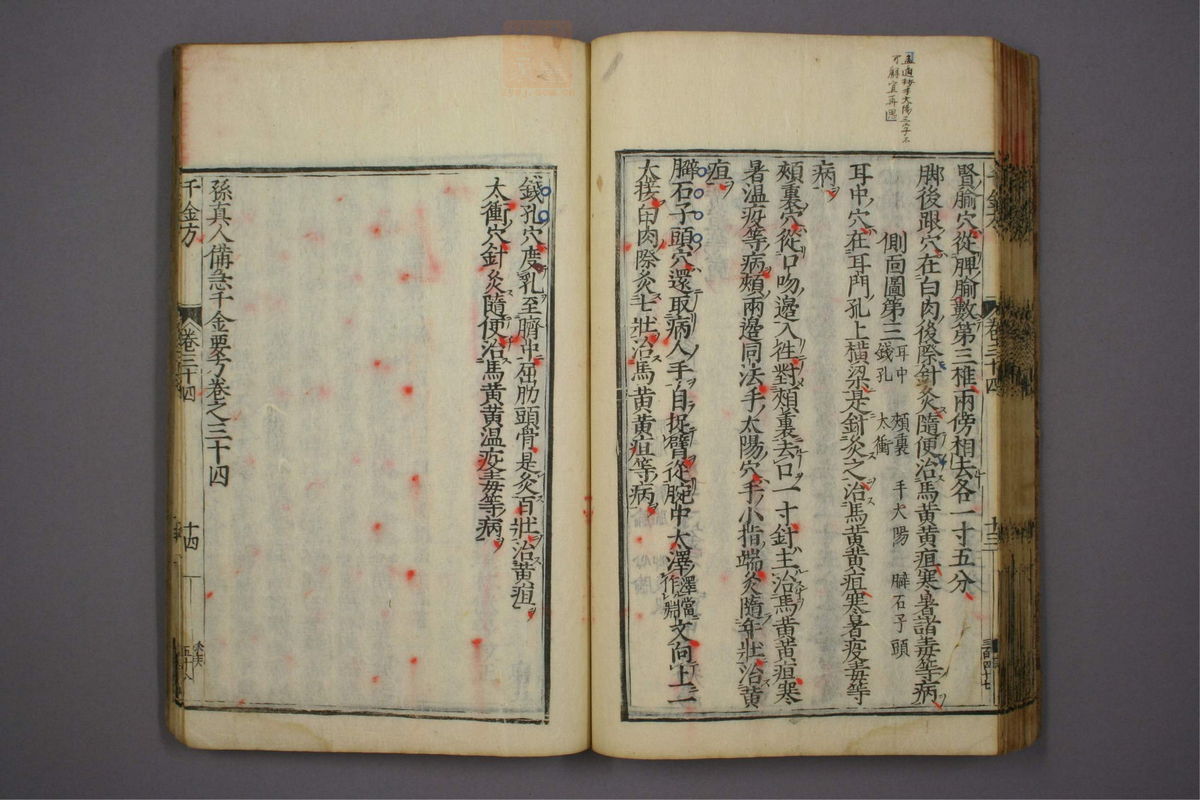 可解宜再思
腎腧穴從脾腧數第三椎兩傍相去各一寸五分
脚後跟穴在白肉後際針灸隨便治馬黃黃疸寒暑諸毒等病
側面圖第三 耳中 頰裏 手太陽 臂石子頭 錢孔 太衝
耳中穴在耳門孔上橫梁是針灸之治馬黃黃疸寒暑疫毒等
病
頰裏穴從口吻邊入往對頰裏去口一寸針主治馬黃黃疸寒
暑溫疫等病頰兩邊同法手太陽穴手小指端灸隨年壯治黃
疸
臂石子頭穴還取病人手自捉臂從腕中太澤澤當作淵文向上一
大接白肉際灸七壯治馬黃黃疸等病
錢孔穴度乳至臍中屈肋頭骨是灸百壯治黃疸
太衝穴針灸隨便治馬黃黃溫疫毒等病
孫真人備急千金要方卷之三十四
千金方
卷三十四
十四